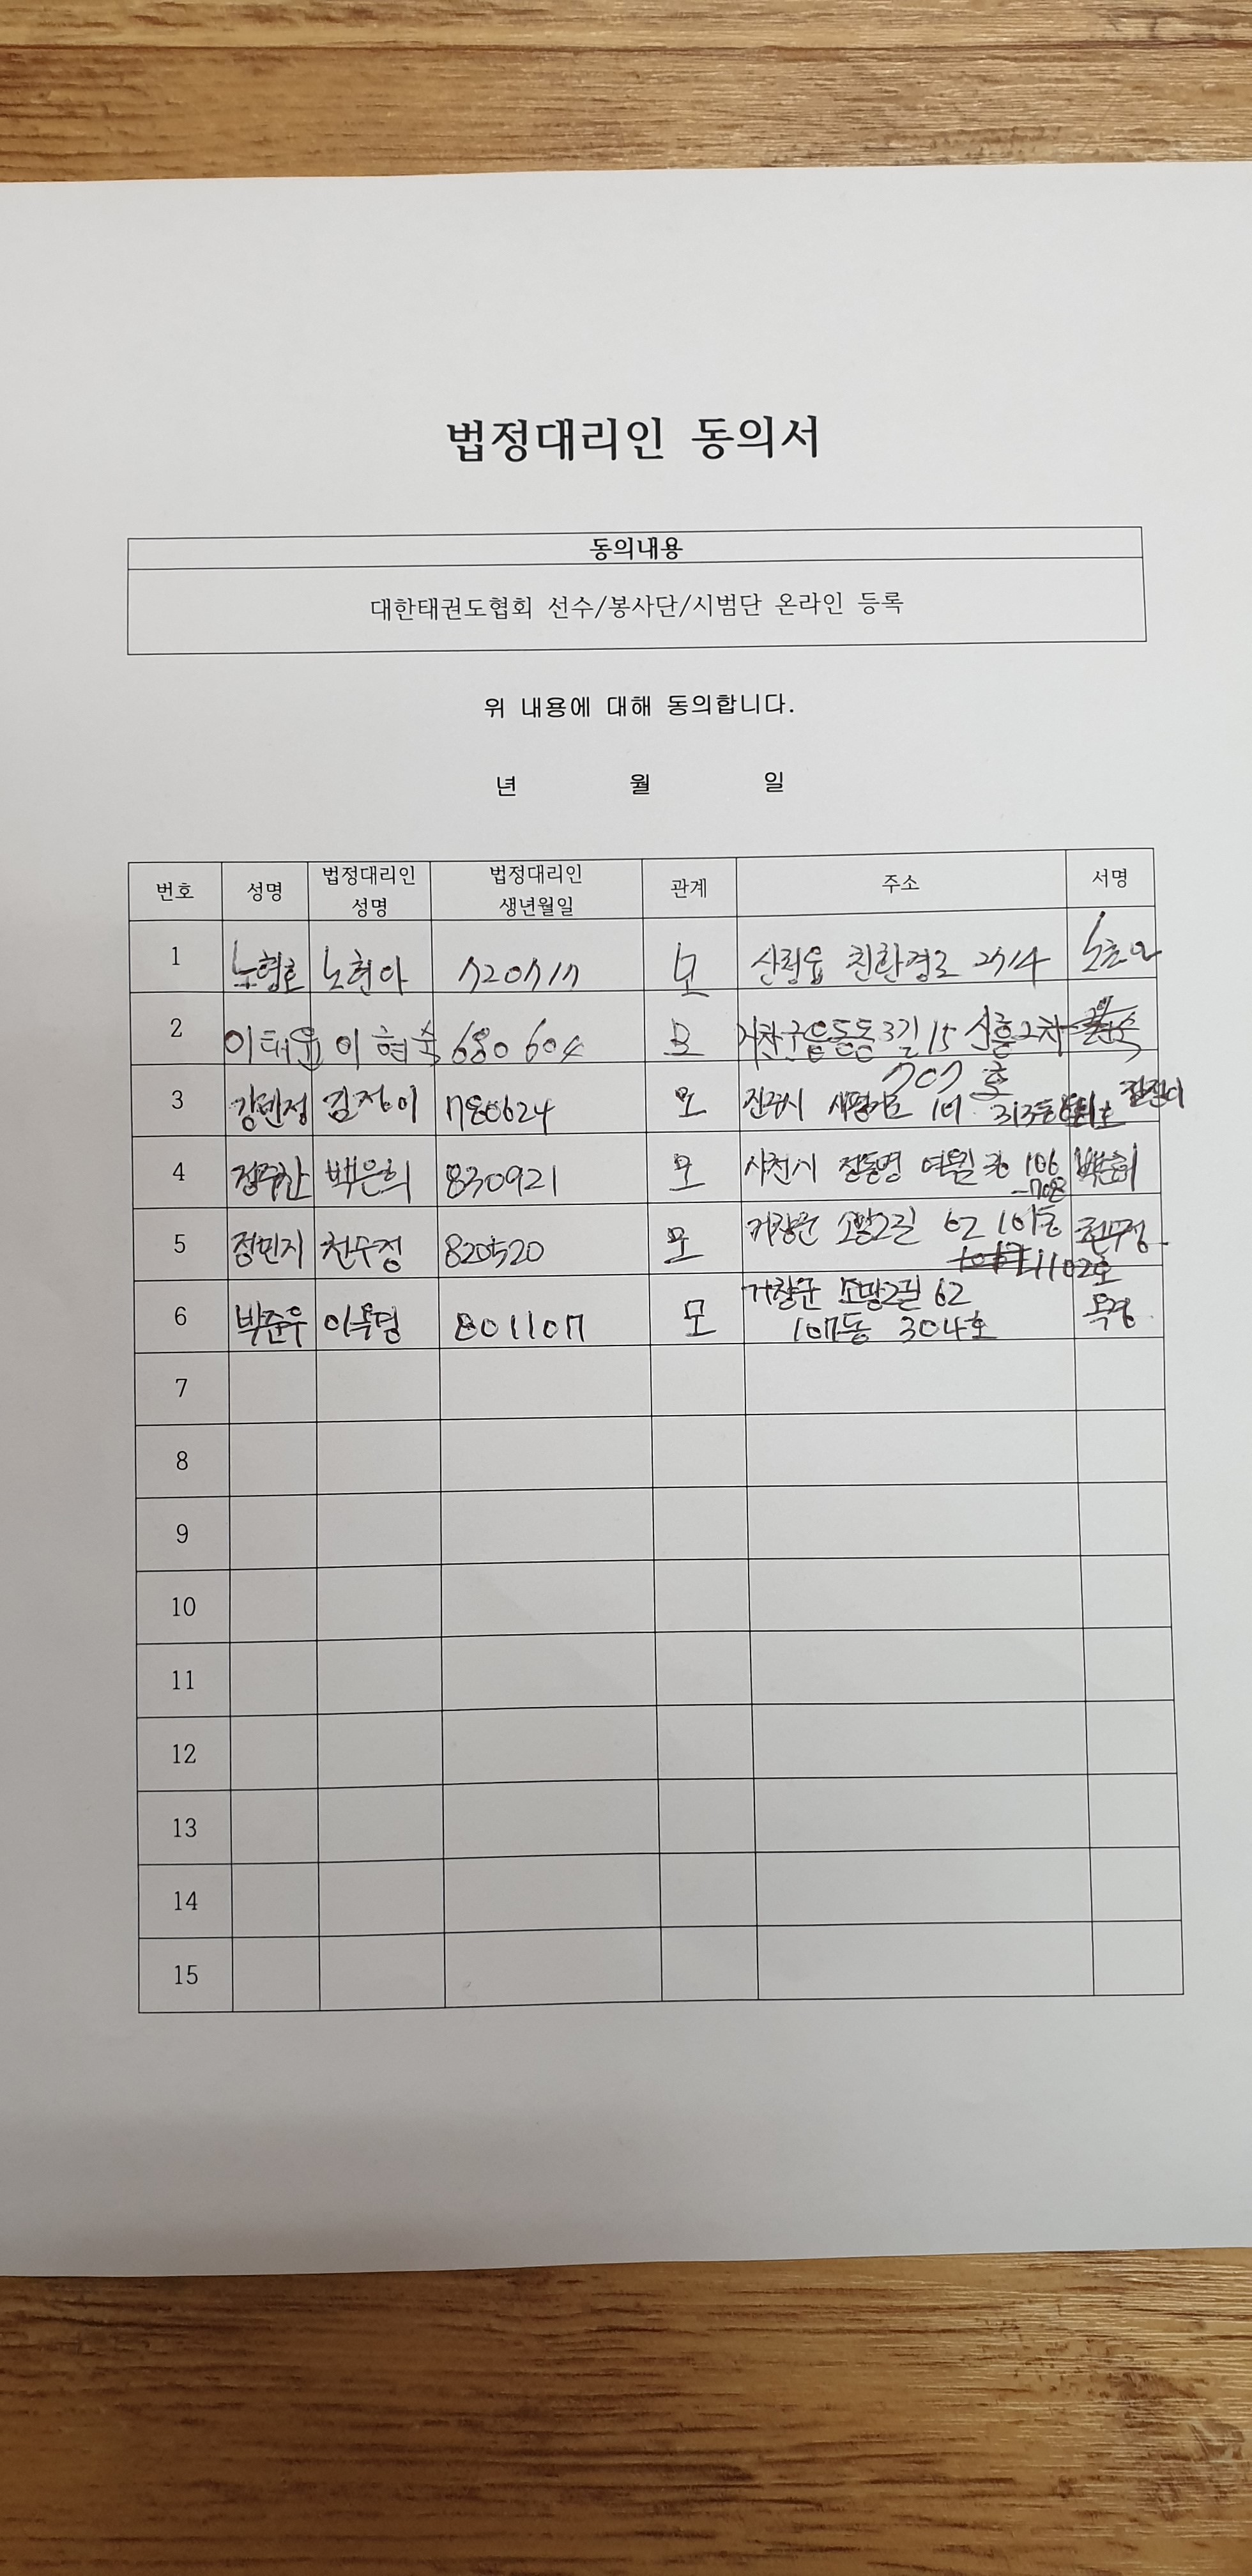 법정대리인 동의서
동의내용
대한태권도협회 선수/봉사단/시범단 온라인 등록
위 내용에 대해 동의합니다.
년 월 일
번호 성명 법정대리인 성명 법정대리인 생년월일 관계 주소 서명
1 노현아 720717 친환경로 2714
2 이태윤 이현숙 680604 모 3길 15 신흥2차
707호
3 김정이 780624 모 진주시
4 백은희 830921 모 사천시 정동면 106
-708
5 정민지 천수정 820520 모 거창군 소망2길 62 101동
1102호
6 박준우 801107 모 거창군 소망2길 62
107동 304호
7
8
9
10
11
12
13
14
15